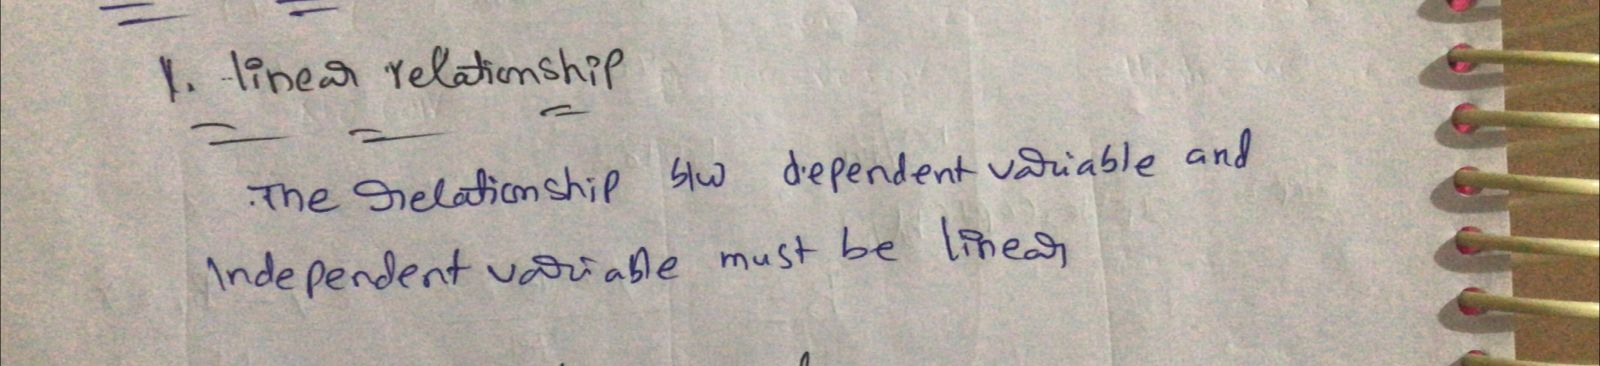 1. linear relationship
The relationship b/w dependent variable and
Independent variable must be linear